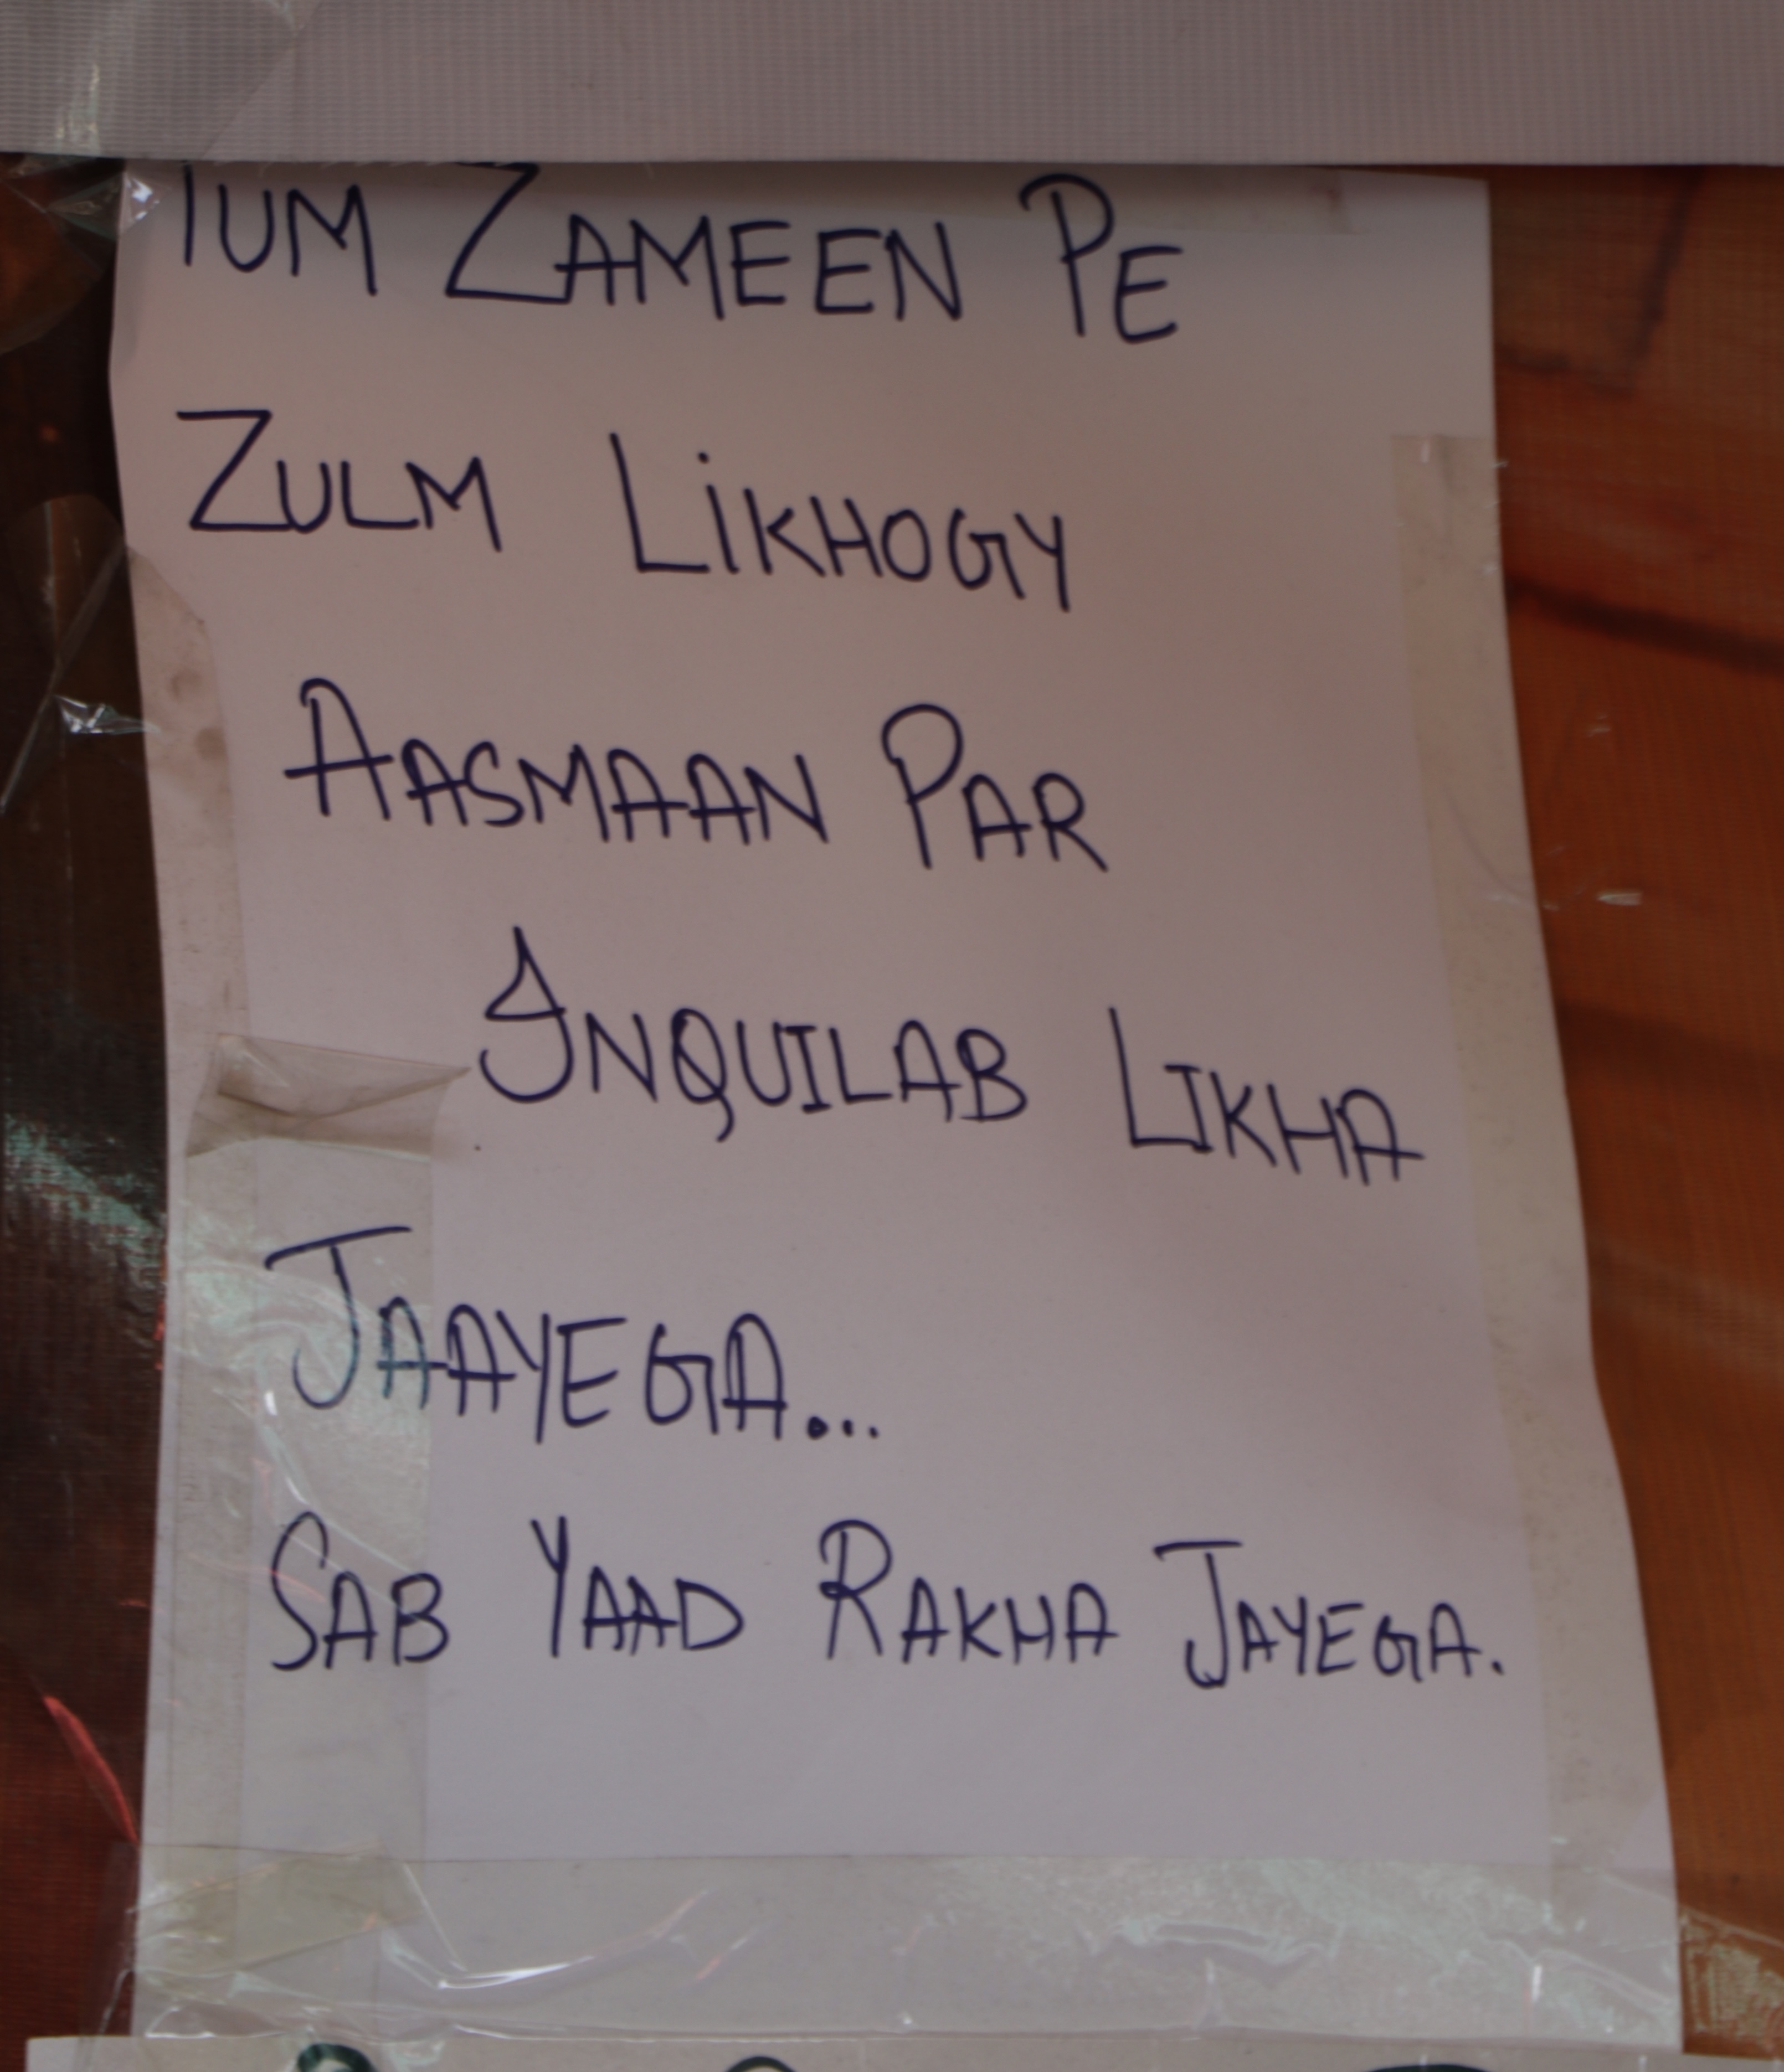 TUM ZAMEEN PE
ZULM LIKHOGY
AASMAAN PAR
INQUILAB LIKHA
JAAYEGA...
SAB YAAD RAKHA JAYEGA.